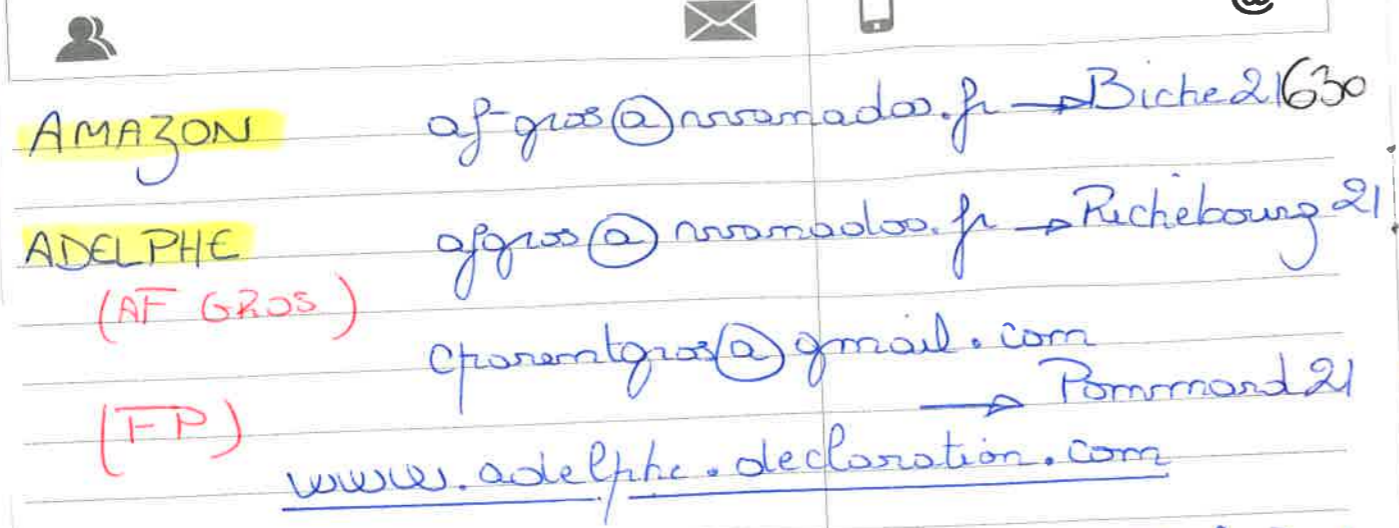 @
AMAZON af-gros@wanadoo.fr → Biche21630
ADELPHE afgros@wanadoo.fr → Richebourg21
(AF GROS)
cparentgros@gmail.com
(FP) → Pommard21
www.adelphe.declaration.com